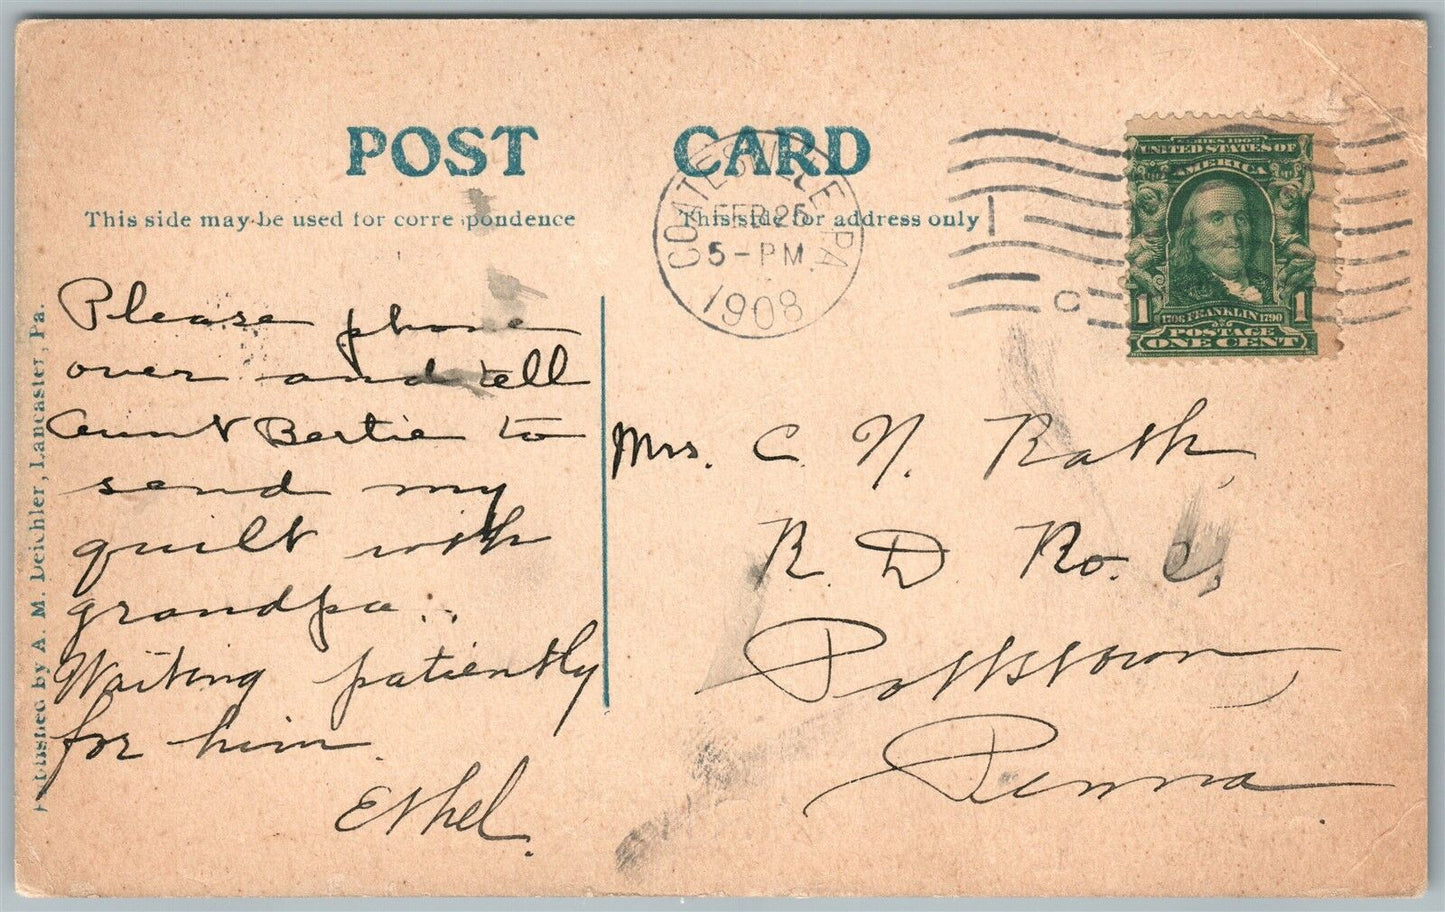 POST CARD
This side may be used for correspondence
This side for address only
COATESVILLE, PA.
FEB 25
5-PM
1908
1
C
SERIES 1902
UNITED STATES OF
AMERICA
1 1
1706 FRANKLIN 1790
POSTAGE
ONE CENT
Please phone
over and tell
Aunt Bertie to
send my
quilt with
grandpa..
Waiting patiently
for him
Ethel.
Mrs. C. N. Rath,
R. D. No.
Pottstown
Penna.
Published by A. M. Deichler, Lancaster, Pa.